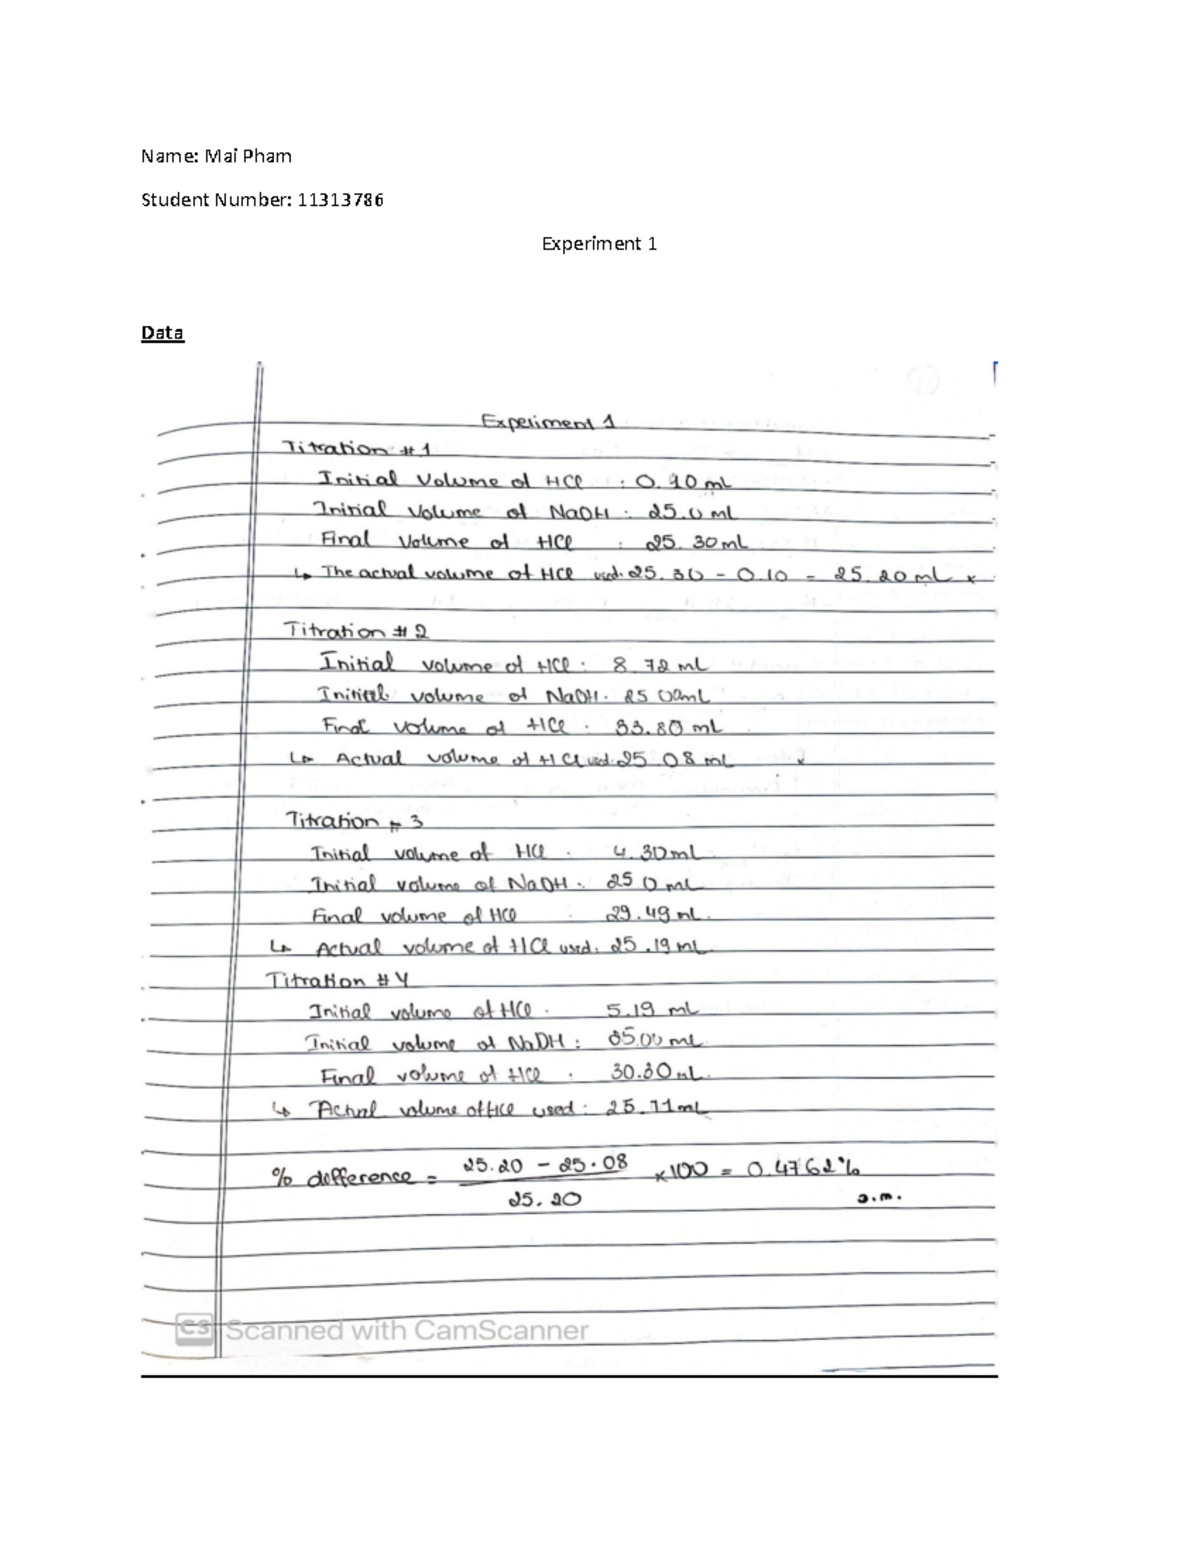 Name: Mai Pham
Student Number: 11313786
Experiment 1
Data
Experiment 1
Titration #1
Initial Volume of HCl : 0.10 mL
Initial Volume of NaOH : 25.0 mL
Final Volume of HCl : 25.30 mL
↳ The actual volume of HCl used: 25.30 - 0.10 = 25.20 mL x
Titration #2
Initial volume of HCl : 8.72 mL
Initial volume of NaOH : 25.00 mL
Final volume of HCl : 33.80 mL
↳ Actual volume of HCl used: 25.08 mL x
Titration #3
Initial volume of HCl : 4.30 mL
Initial volume of NaOH : 25.0 mL
Final volume of HCl : 29.49 mL.
↳ Actual volume of HCl used: 25.19 mL
Titration #4
Initial volume of HCl : 5.19 mL
Initial volume of NaOH : 25.00 mL
Final volume of HCl : 30.30 mL.
↳ Actual volume of HCl used : 25.11 mL
% difference = 25.20 - 25.08 x100 = 0.4762%
25.20
CS Scanned with CamScanner